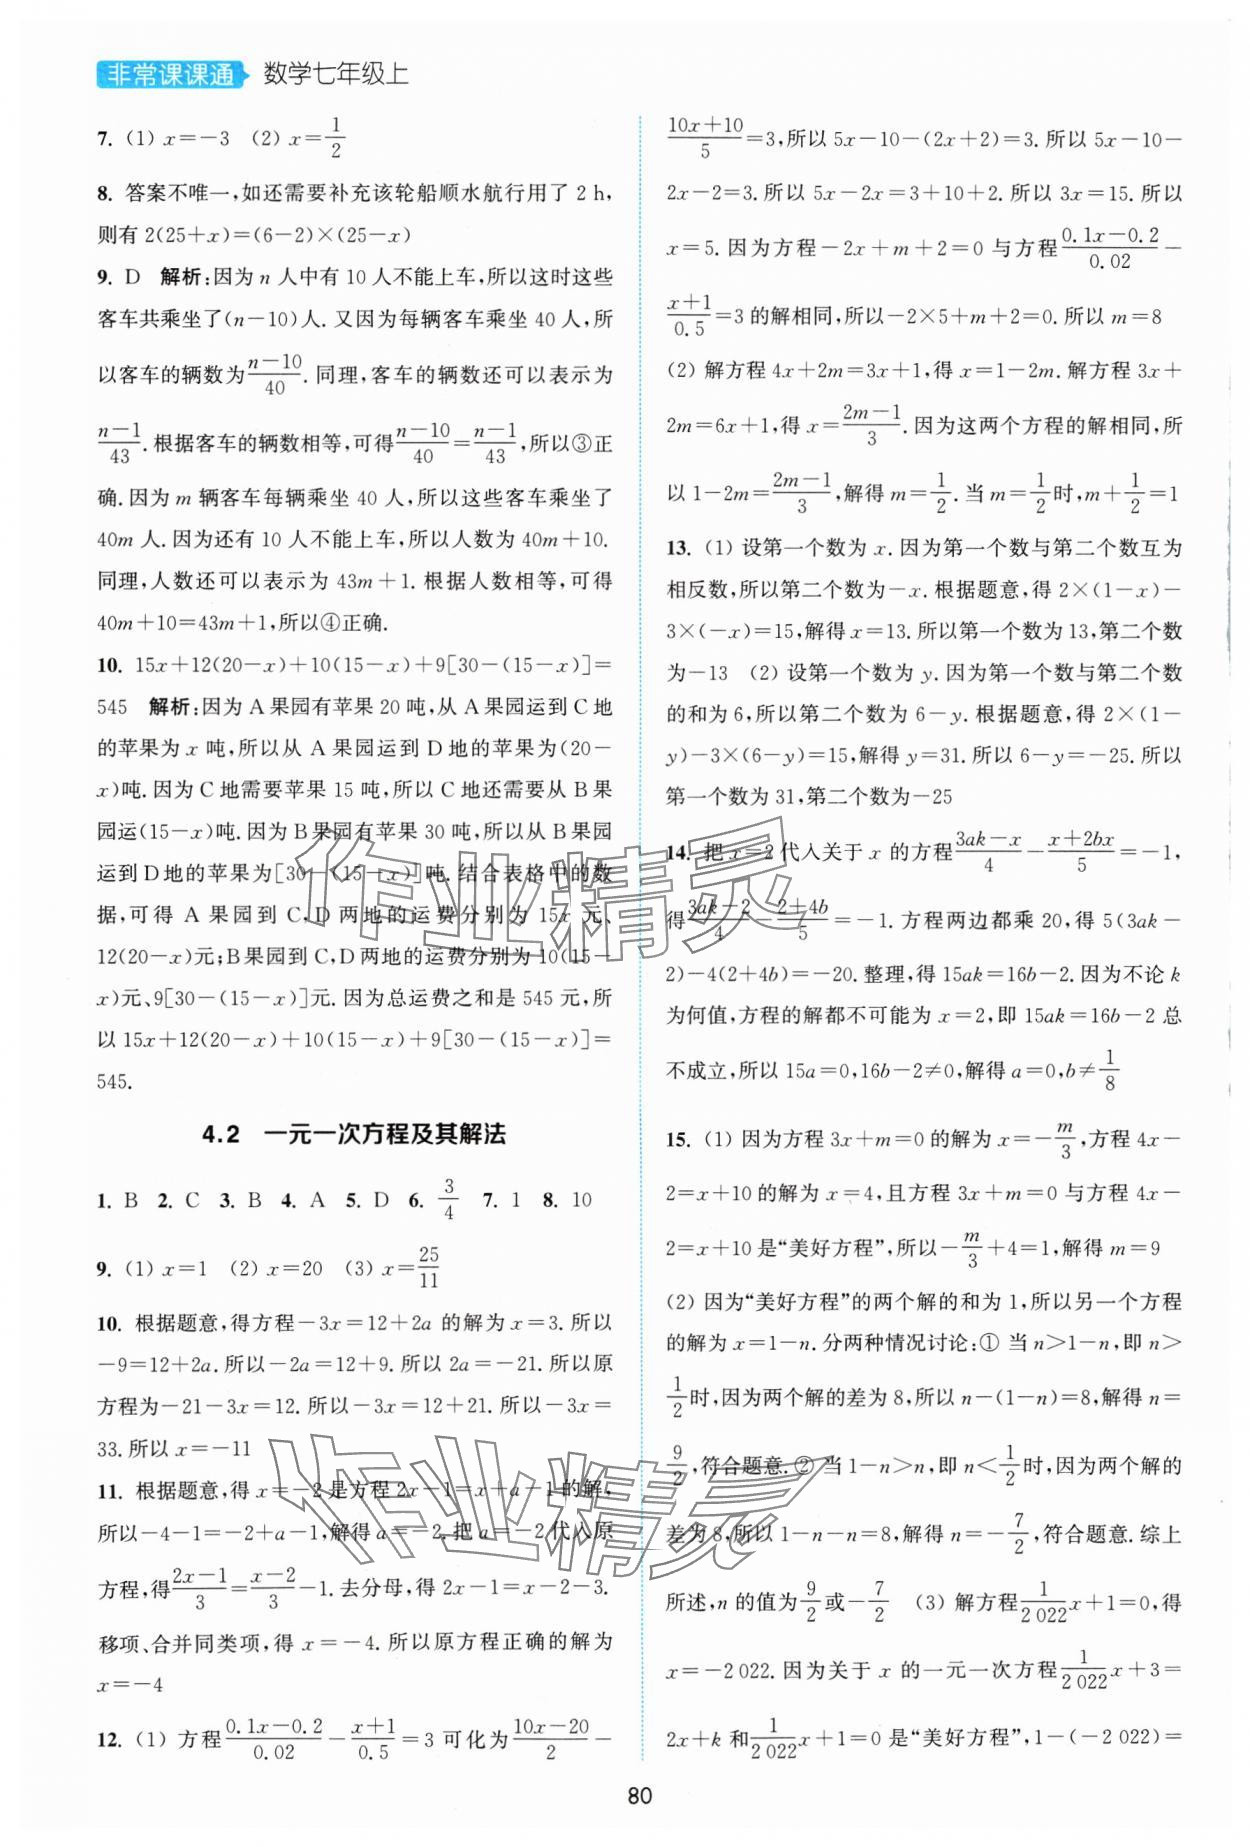 非常课课通 数学七年级上
7. (1) x=-3 (2) x=1/2
8. 答案不唯一,如还需要补充该轮船顺水航行用了 2 h,
则有 2(25+x)=(6-2)×(25-x)
9. D 解析:因为 n 人中有 10 人不能上车,所以这时这些
客车共乘坐了(n-10)人. 又因为每辆客车乘坐 40 人,所
以客车的辆数为(n-10)/40. 同理,客车的辆数还可以表示为
(n-1)/43. 根据客车的辆数相等,可得(n-10)/40=(n-1)/43,所以③正
确. 因为 m 辆客车每辆乘坐 40 人,所以这些客车乘坐了
40m 人. 因为还有 10 人不能上车,所以人数为 40m+10.
同理,人数还可以表示为 43m+1. 根据人数相等,可得
40m+10=43m+1,所以④正确.
10. 15x+12(20-x)+10(15-x)+9[30-(15-x)]=
545 解析:因为 A 果园有苹果 20 吨,从 A 果园运到 C 地
的苹果为 x 吨,所以从 A 果园运到 D 地的苹果为(20-
x)吨. 因为 C 地需要苹果 15 吨,所以 C 地还需要从 B 果
园运(15-x)吨. 因为 B 果园有苹果 30 吨,所以从 B 果园
运到 D 地的苹果为[30-(15-x)]吨. 结合表格中的数
据,可得 A 果园到 C,D 两地的运费分别为 15x 元、
12(20-x)元;B 果园到 C,D 两地的运费分别为 10(15-
x)元、9[30-(15-x)]元. 因为总运费之和是 545 元,所
以 15x+12(20-x)+10(15-x)+9[30-(15-x)]=
545.
4.2 一元一次方程及其解法
1. B 2. C 3. B 4. A 5. D 6. 3/4 7. 1 8. 10
9. (1) x=1 (2) x=20 (3) x=25/11
10. 根据题意,得方程-3x=12+2a 的解为 x=3. 所以
-9=12+2a. 所以-2a=12+9. 所以 2a=-21. 所以原
方程为-21-3x=12. 所以-3x=12+21. 所以-3x=
33. 所以 x=-11
11. 根据题意,得 x=-2 是方程 2x-1=x+a-1 的解,
所以-4-1=-2+a-1,解得 a=-2. 把 a=-2 代入原
方程,得(2x-1)/3=(x-2)/3-1. 去分母,得 2x-1=x-2-3.
移项、合并同类项,得 x=-4. 所以原方程正确的解为
x=-4
12. (1) 方程(0.1x-0.2)/0.02-(x+1)/0.5=3 可化为(10x-20)/2-
(10x+10)/5=3,所以 5x-10-(2x+2)=3. 所以 5x-10-
2x-2=3. 所以 5x-2x=3+10+2. 所以 3x=15. 所以
x=5. 因为方程-2x+m+2=0 与方程(0.1x-0.2)/0.02-
(x+1)/0.5=3 的解相同,所以-2×5+m+2=0. 所以 m=8
(2) 解方程 4x+2m=3x+1,得 x=1-2m. 解方程 3x+
2m=6x+1,得 x=(2m-1)/3. 因为这两个方程的解相同,所
以 1-2m=(2m-1)/3,解得 m=1/2. 当 m=1/2时,m+1/2=1
13. (1) 设第一个数为 x. 因为第一个数与第二个数互为
相反数,所以第二个数为-x. 根据题意,得 2×(1-x)-
3×(-x)=15,解得 x=13. 所以第一个数为 13,第二个数
为-13 (2) 设第一个数为 y. 因为第一个数与第二个数
的和为 6,所以第二个数为 6-y. 根据题意,得 2×(1-
y)-3×(6-y)=15,解得 y=31. 所以 6-y=-25. 所以
第一个数为 31,第二个数为-25
14. 把 x=2 代入关于 x 的方程(3ak-x)/4-(x+2bx)/5=-1,
得(3ak-2)/4-(2+4b)/5=-1. 方程两边都乘 20,得 5(3ak-
2)-4(2+4b)=-20. 整理,得 15ak=16b-2. 因为不论 k
为何值,方程的解都不可能为 x=2,即 15ak=16b-2 总
不成立,所以 15a=0,16b-2≠0,解得 a=0,b≠1/8
15. (1) 因为方程 3x+m=0 的解为 x=-m/3,方程 4x-
2=x+10 的解为 x=4,且方程 3x+m=0 与方程 4x-
2=x+10 是“美好方程”,所以-m/3+4=1,解得 m=9
(2) 因为“美好方程”的两个解的和为 1,所以另一个方程
的解为 x=1-n. 分两种情况讨论:① 当 n>1-n,即 n>
1/2时,因为两个解的差为 8,所以 n-(1-n)=8,解得 n=
9/2,符合题意. ② 当 1-n>n,即 n<1/2时,因为两个解的
差为 8,所以 1-n-n=8,解得 n=-7/2,符合题意. 综上
所述,n 的值为9/2或-7/2 (3) 解方程1/2 022x+1=0,得
x=-2 022. 因为关于 x 的一元一次方程1/2 022x+3=
2x+k 和1/2 022x+1=0 是“美好方程”,1-(-2 022)=
80
作业精灵
作业精灵